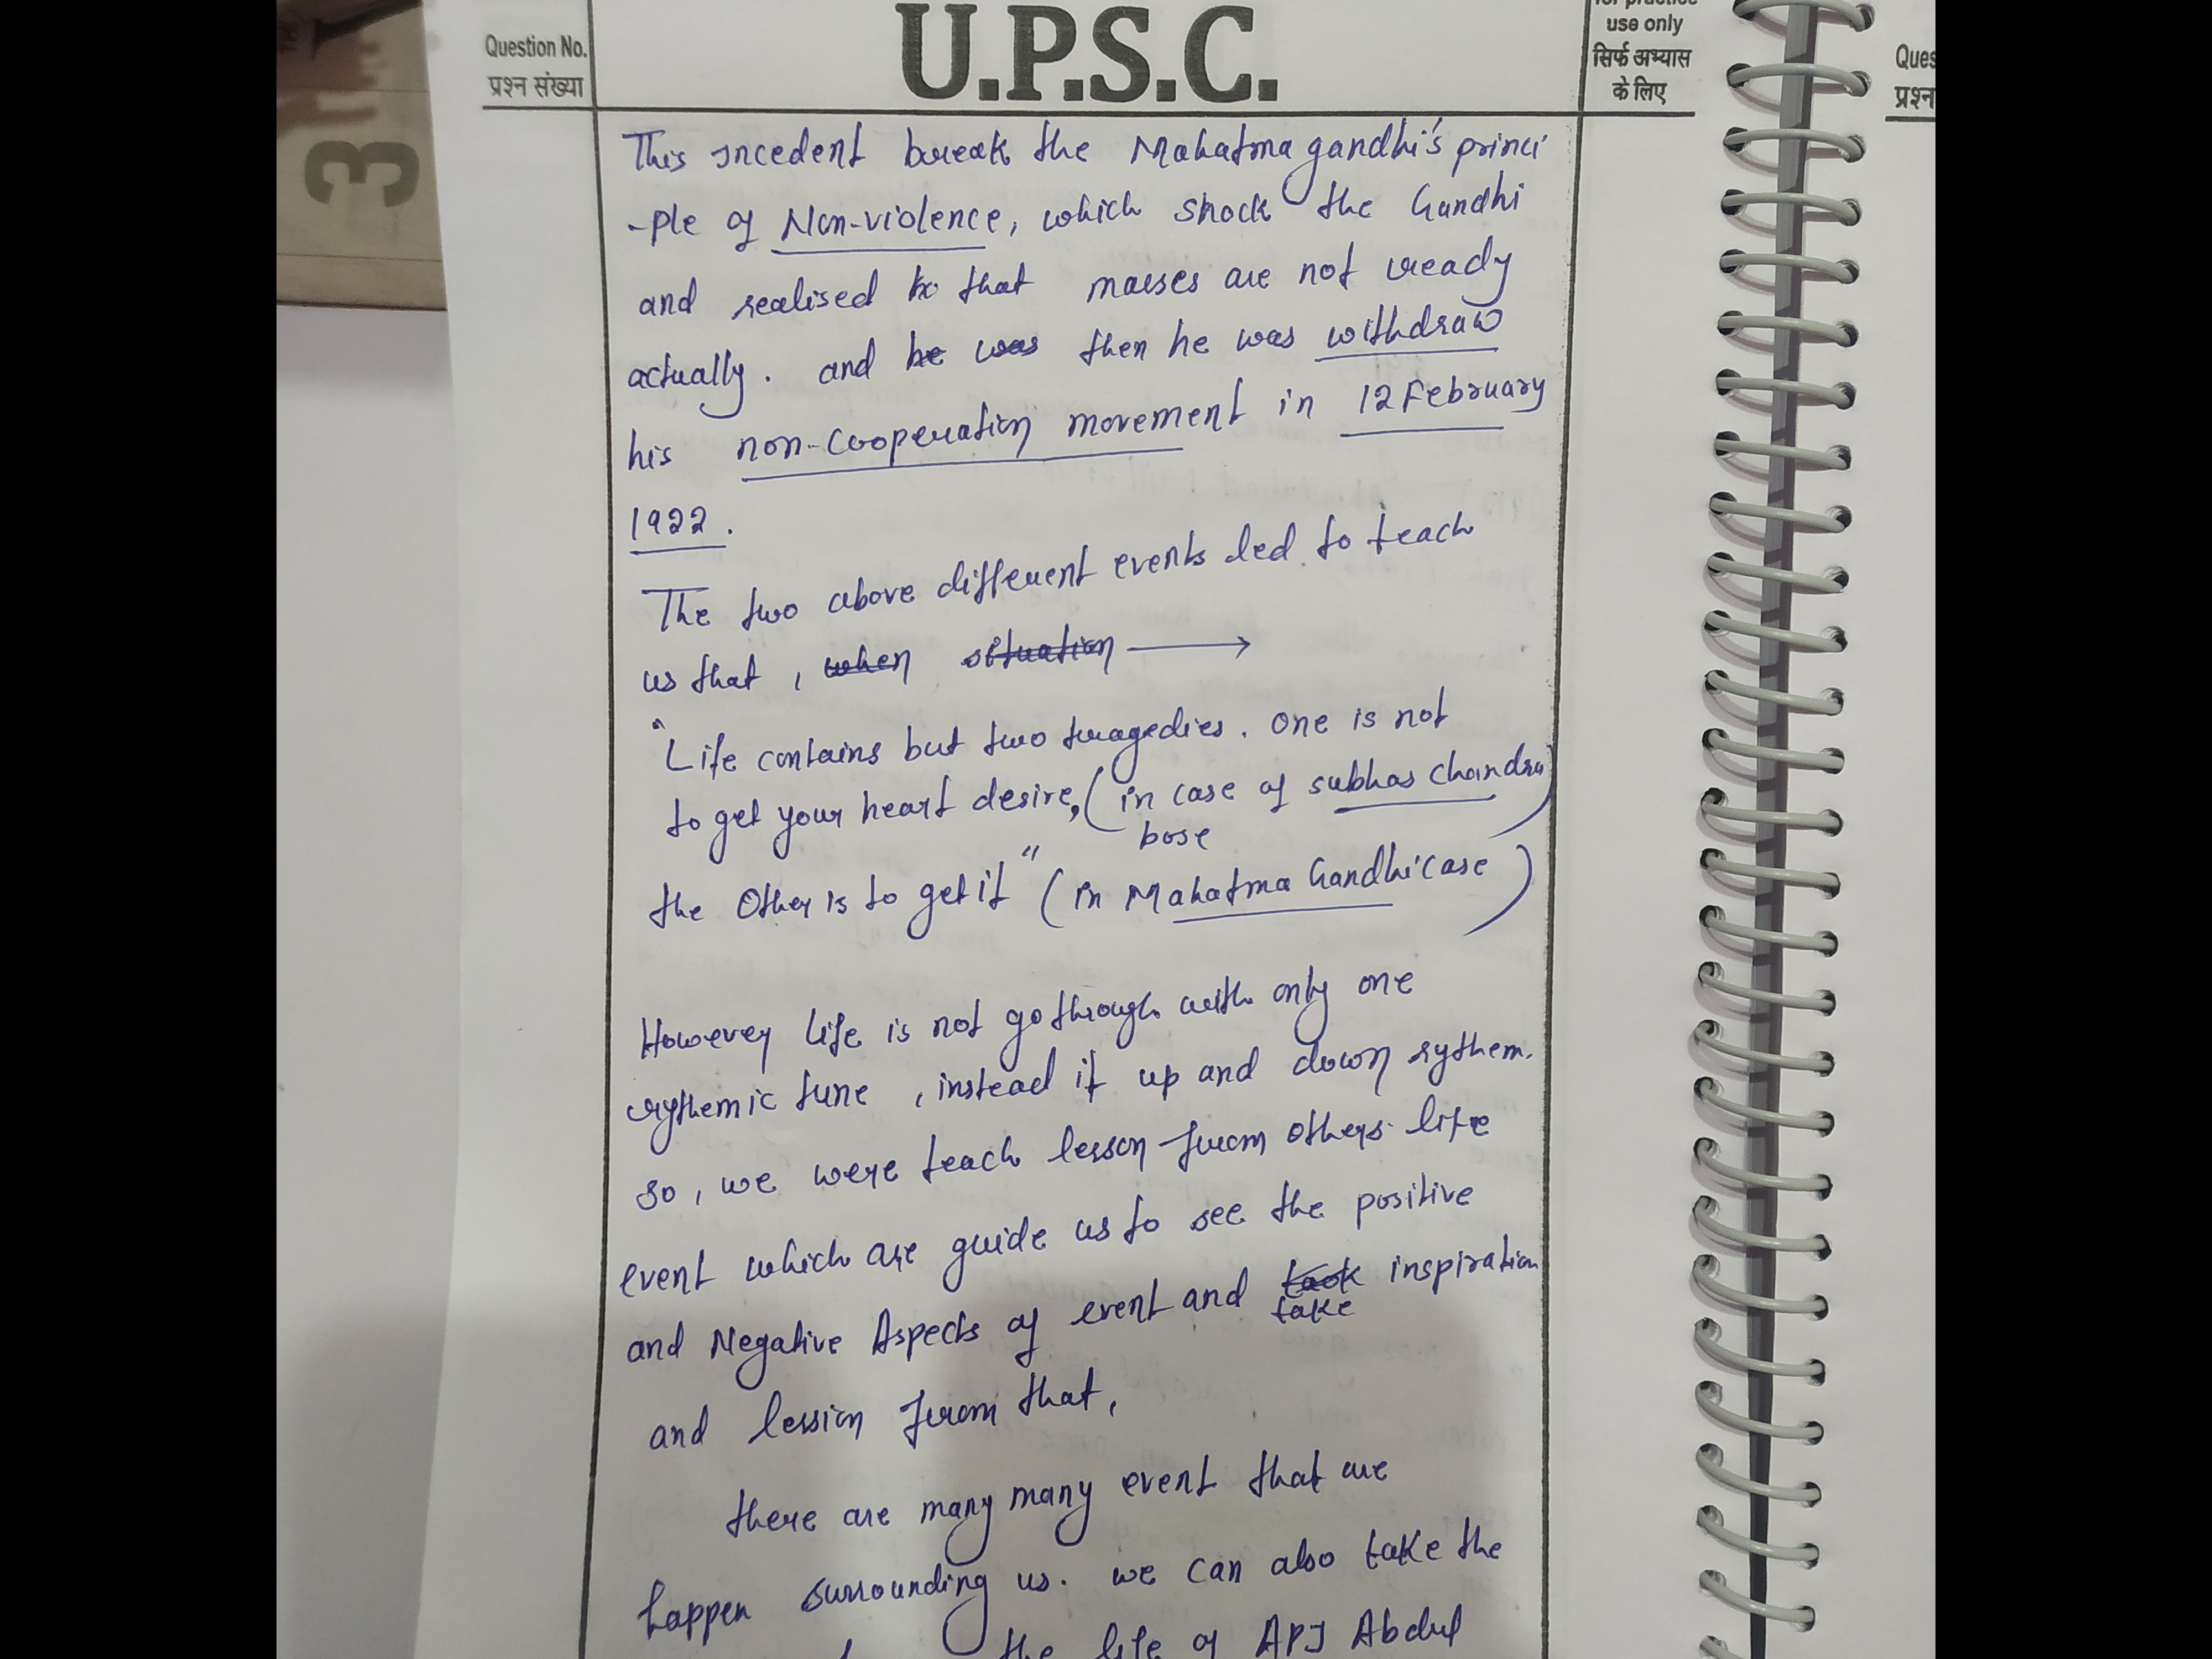 Question No.
प्रश्न संख्या
U.P.S.C.
use only
सिर्फ अभ्यास
के लिए
This incedent break the Mahatma gandhi's princi
-ple of Non-violence, which shock the Gandhi
and realised to that masses are not ready
actually. and he was then he was withdraw
his non-cooperation movement in 12 February
1922.
The two above different events led to teach
us that, when situation →
"Life contains but two tragedies. One is not
to get your heart desire, (in case of subhas Chandra
bose)
the Other is to get it" (in Mahatma Gandhi case)
However life is not go through with only one
rythemic tune, instead it up and down rythem.
so, we were teach lesson from others life
event which are guide us to see the positive
and Negative Aspects of event and took inspiration
take
and lession from that,
there are many many event that are
happen surrounding us. we can also take the
the life of APJ Abdul